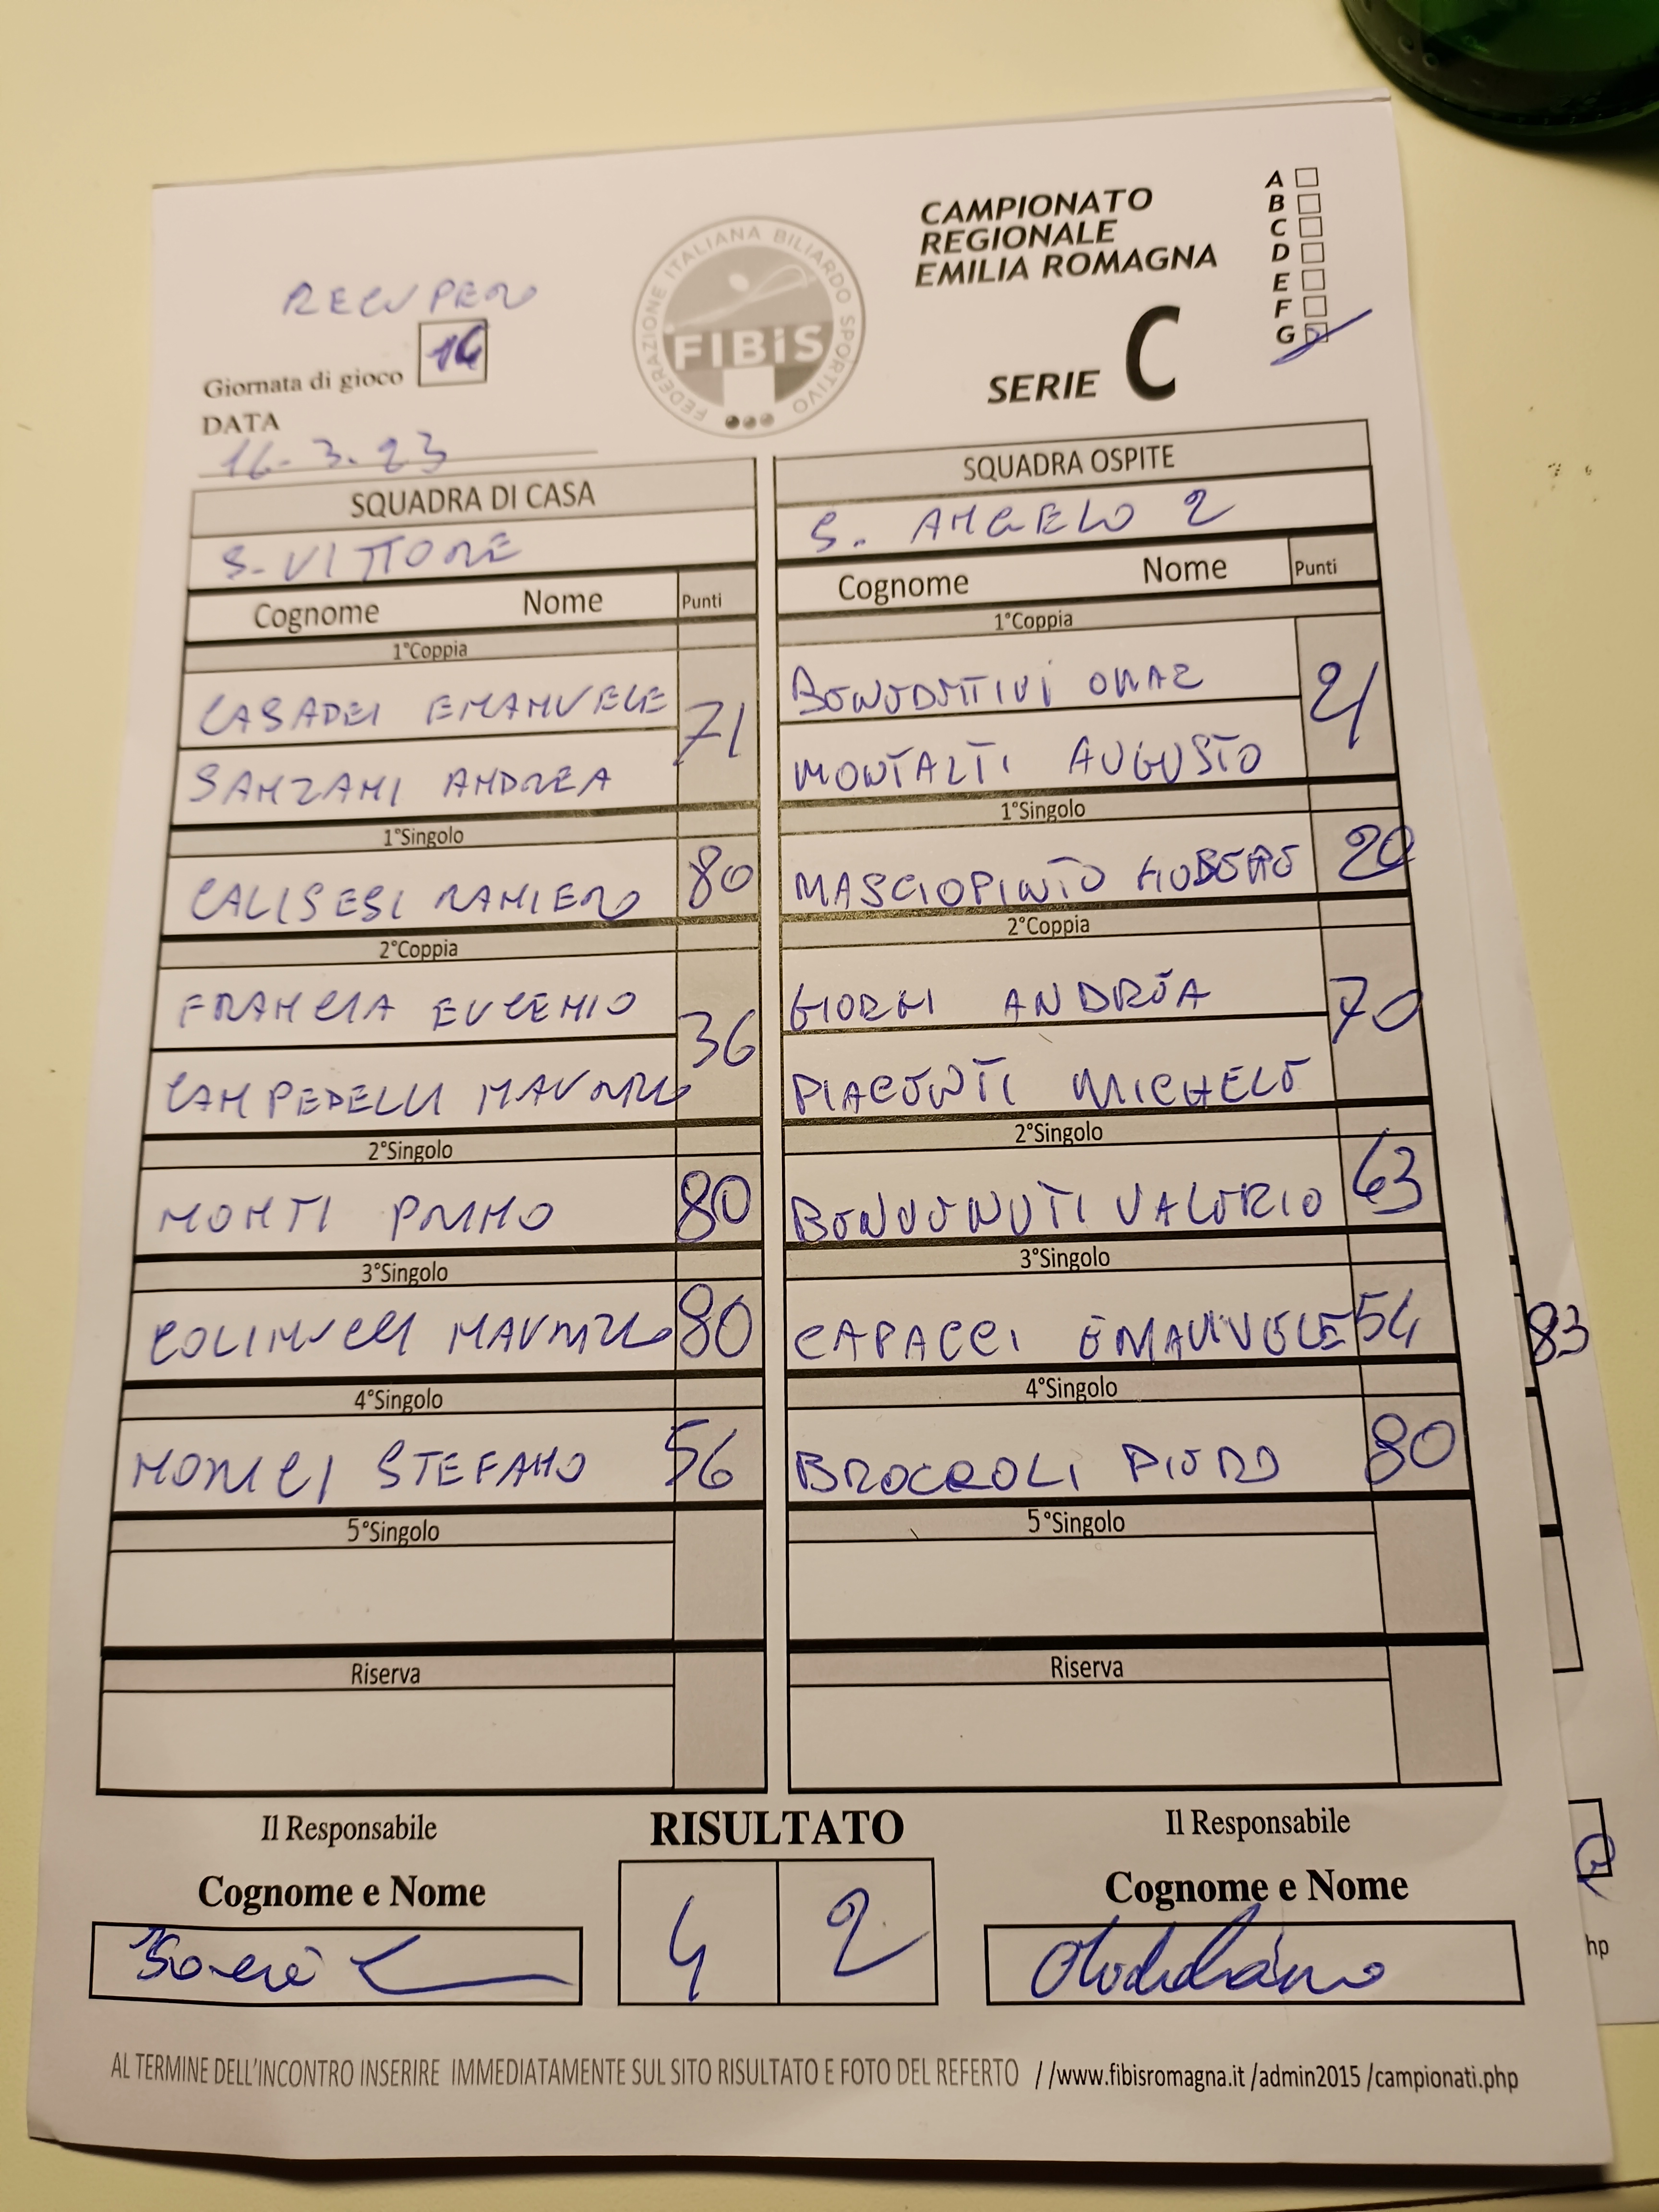 RECUPERO
Giornata di gioco 14
DATA
16-3-23
FEDERAZIONE ITALIANA BILIARDO SPORTIVO
FIBiS
CAMPIONATO
REGIONALE
EMILIA ROMAGNA
SERIE C
A
B
C
D
E
F
G
SQUADRA DI CASA
S. VITTORE
Cognome Nome Punti
1°Coppia
CASADEI EMANUELE 71
SANZANI ANDREA
1°Singolo
CALISESI RANIERO 80
2°Coppia
FRANCIA EUGENIO 36
CAMPEDELLI MAURIZIO
2°Singolo
MONTI PRIMO 80
3°Singolo
COLINUCCI MAURIZIO 80
4°Singolo
MORICI STEFANO 56
5°Singolo
Riserva
SQUADRA OSPITE
S. ANGELO 2
Cognome Nome Punti
1°Coppia
BENEDETTINI OMAR 21
MONTALTI AUGUSTO
1°Singolo
MASCIOPINTO 20
2°Coppia
GIORGI ANDREA 70
PIACENTI MICHELE
2°Singolo
BENVENUTI VALERIO 63
3°Singolo
CAPACCI EMANUELE 54
4°Singolo
BROCCOLI PIERO 80
5°Singolo
Riserva
Il Responsabile
Cognome e Nome
RISULTATO
4 2
Il Responsabile
Cognome e Nome
AL TERMINE DELL'INCONTRO INSERIRE IMMEDIATAMENTE SUL SITO RISULTATO E FOTO DEL REFERTO //www.fibisromagna.it /admin2015 /campionati.php
83
hp